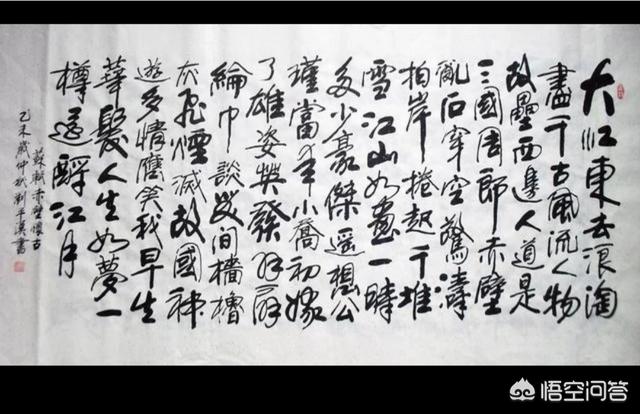 大江東去浪淘
盡千古風流人物
故壘西邊人道是
三國周郎赤壁
亂石穿空驚濤
拍岸捲起千堆
雪江山如畫一時
多少豪傑遥想公
瑾當年小喬初嫁
了雄姿英發羽扇
綸巾談笑间檣櫓
灰飛煙滅故國神
遊多情應笑我早生
華髮人生如夢一
樽還酹江月
蘇軾赤壁懷古
乙未歲仲秋劉書
悟空问答